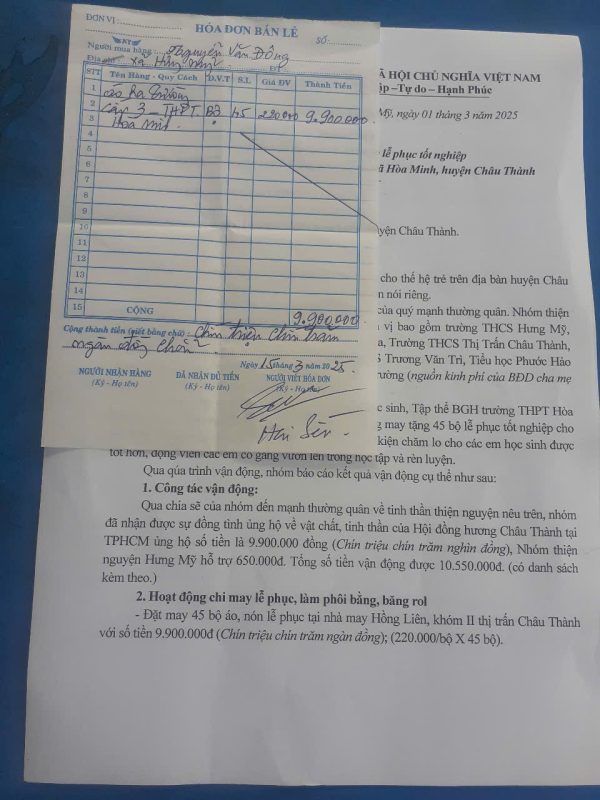 ĐƠN VỊ
HÓA ĐƠN BÁN LẺ
SỐ:
NT
Người mua hàng: Nguyễn Văn Đông
Địa chỉ xã Hưng Mỹ ĐT
STT Tên Hàng - Quy Cách Đ.V.T S.L Giá ĐV Thành Tiền
1 áo Ra Trường
2 Cấp 3 - THPT Bộ 45 220000 9.900.000
3 Hòa Minh.
4
5
6
7
8
9
10
11
12
13
14
15 CỘNG 9.900.000
Cộng thành tiền (viết bằng chữ): Chín triệu Chín trăm
ngàn đồng chẵn
Ngày 15 tháng 3 năm 2025.
NGƯỜI NHẬN HÀNG ĐÃ NHẬN ĐỦ TIỀN NGƯỜI VIẾT HÓA ĐƠN
(Ký - Họ tên) (Ký - Họ tên) (Ký - Họ tên)
Ã HỘI CHỦ NGHĨA VIỆT NAM
ập –Tự do – Hạnh Phúc
Mỹ, ngày 01 tháng 3 năm 2025
lễ phục tốt nghiệp
ã Hòa Minh, huyện Châu Thành
uyện Châu Thành.
cho thế hệ trẻ trên địa bàn huyện Châu
n nói riêng.
của quý mạnh thường quân. Nhóm thiện
vị bao gồm trường THCS Hưng Mỹ,
a, Trường THCS Thị Trấn Châu Thành,
S Trương Văn Trì, Tiểu học Phước Hảo
rường (nguồn kinh phí của BĐD cha mẹ
ọc sinh, Tập thể BGH trường THPT Hòa
g may tặng 45 bộ lễ phục tốt nghiệp cho
kiện chăm lo cho các em học sinh được
tốt hơn, động viên các em cố gắng vươn lên trong học tập và rèn luyện.
Qua qúa trình vận động, nhóm báo cáo kết quả vận động cụ thể như sau:
1. Công tác vận động:
Qua chia sẽ của nhóm đến mạnh thường quân về tinh thần thiện nguyện nêu trên, nhóm
đã nhận được sự đồng tình ủng hộ về vật chất, tinh thần của Hội đồng hương Châu Thành tại
TPHCM ủng hộ số tiền là 9.900.000 đồng (Chín triệu chín trăm nghìn đồng), Nhóm thiện
nguyện Hưng Mỹ hỗ trợ 650.000đ. Tổng số tiền vận động được 10.550.000đ. (có danh sách
kèm theo.)
2. Hoạt động chi may lễ phục, làm phôi bằng, băng rol
- Đặt may 45 bộ áo, nón lễ phục tại nhà may Hồng Liên, khóm II thị trấn Châu Thành
với số tiền 9.900.000đ (Chín triệu chín trăm ngàn đồng); (220.000/bộ X 45 bộ).